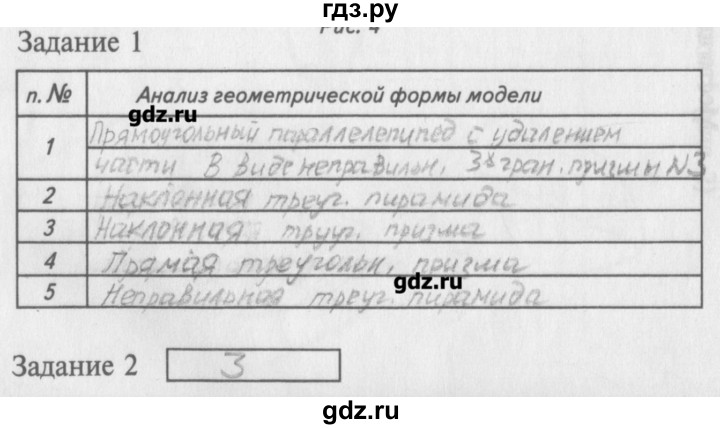 гдз.ру
Рис. 4
Задание 1
п. № Анализ геометрической формы модели
gdz.ru
1 Прямоугольный параллелепипед с удалением
части В виде неправильн. 3х гран. призмы №3
2 Наклонная треуг. пирамида
3 Наклонная трууг. призма
4 Прямая треугольн. призма
gdz.ru
5 Неправильная треуг. пирамида
Задание 2 3
gdz.ru